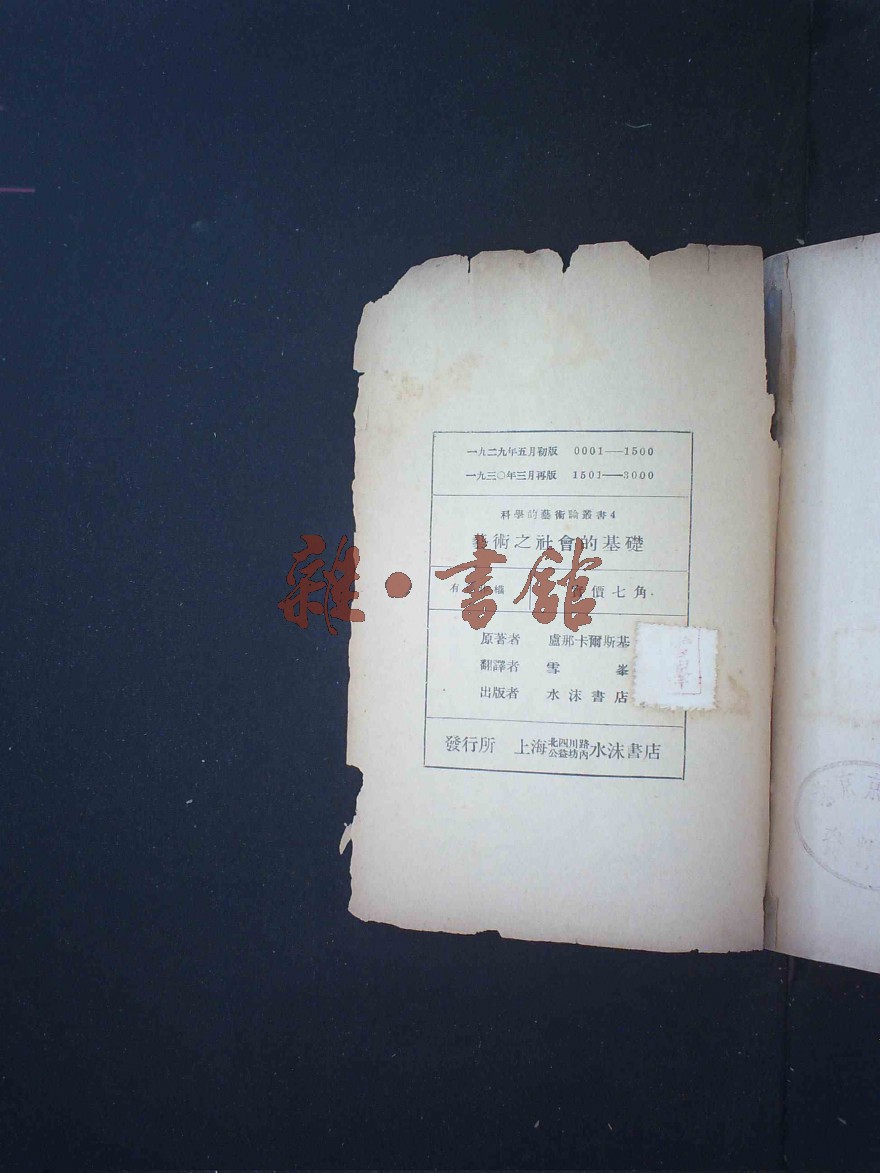 一九二九年五月初版 0001—1500
一九三〇年三月再版 1501—3000
科學的藝術論叢書4
藝術之社會的基礎
有 價七角
原著者 盧那卡爾斯基
翻譯者 雪峯
出版者 水沫書店
發行所 上海北四川路公益坊內水沫書店
雜·書館